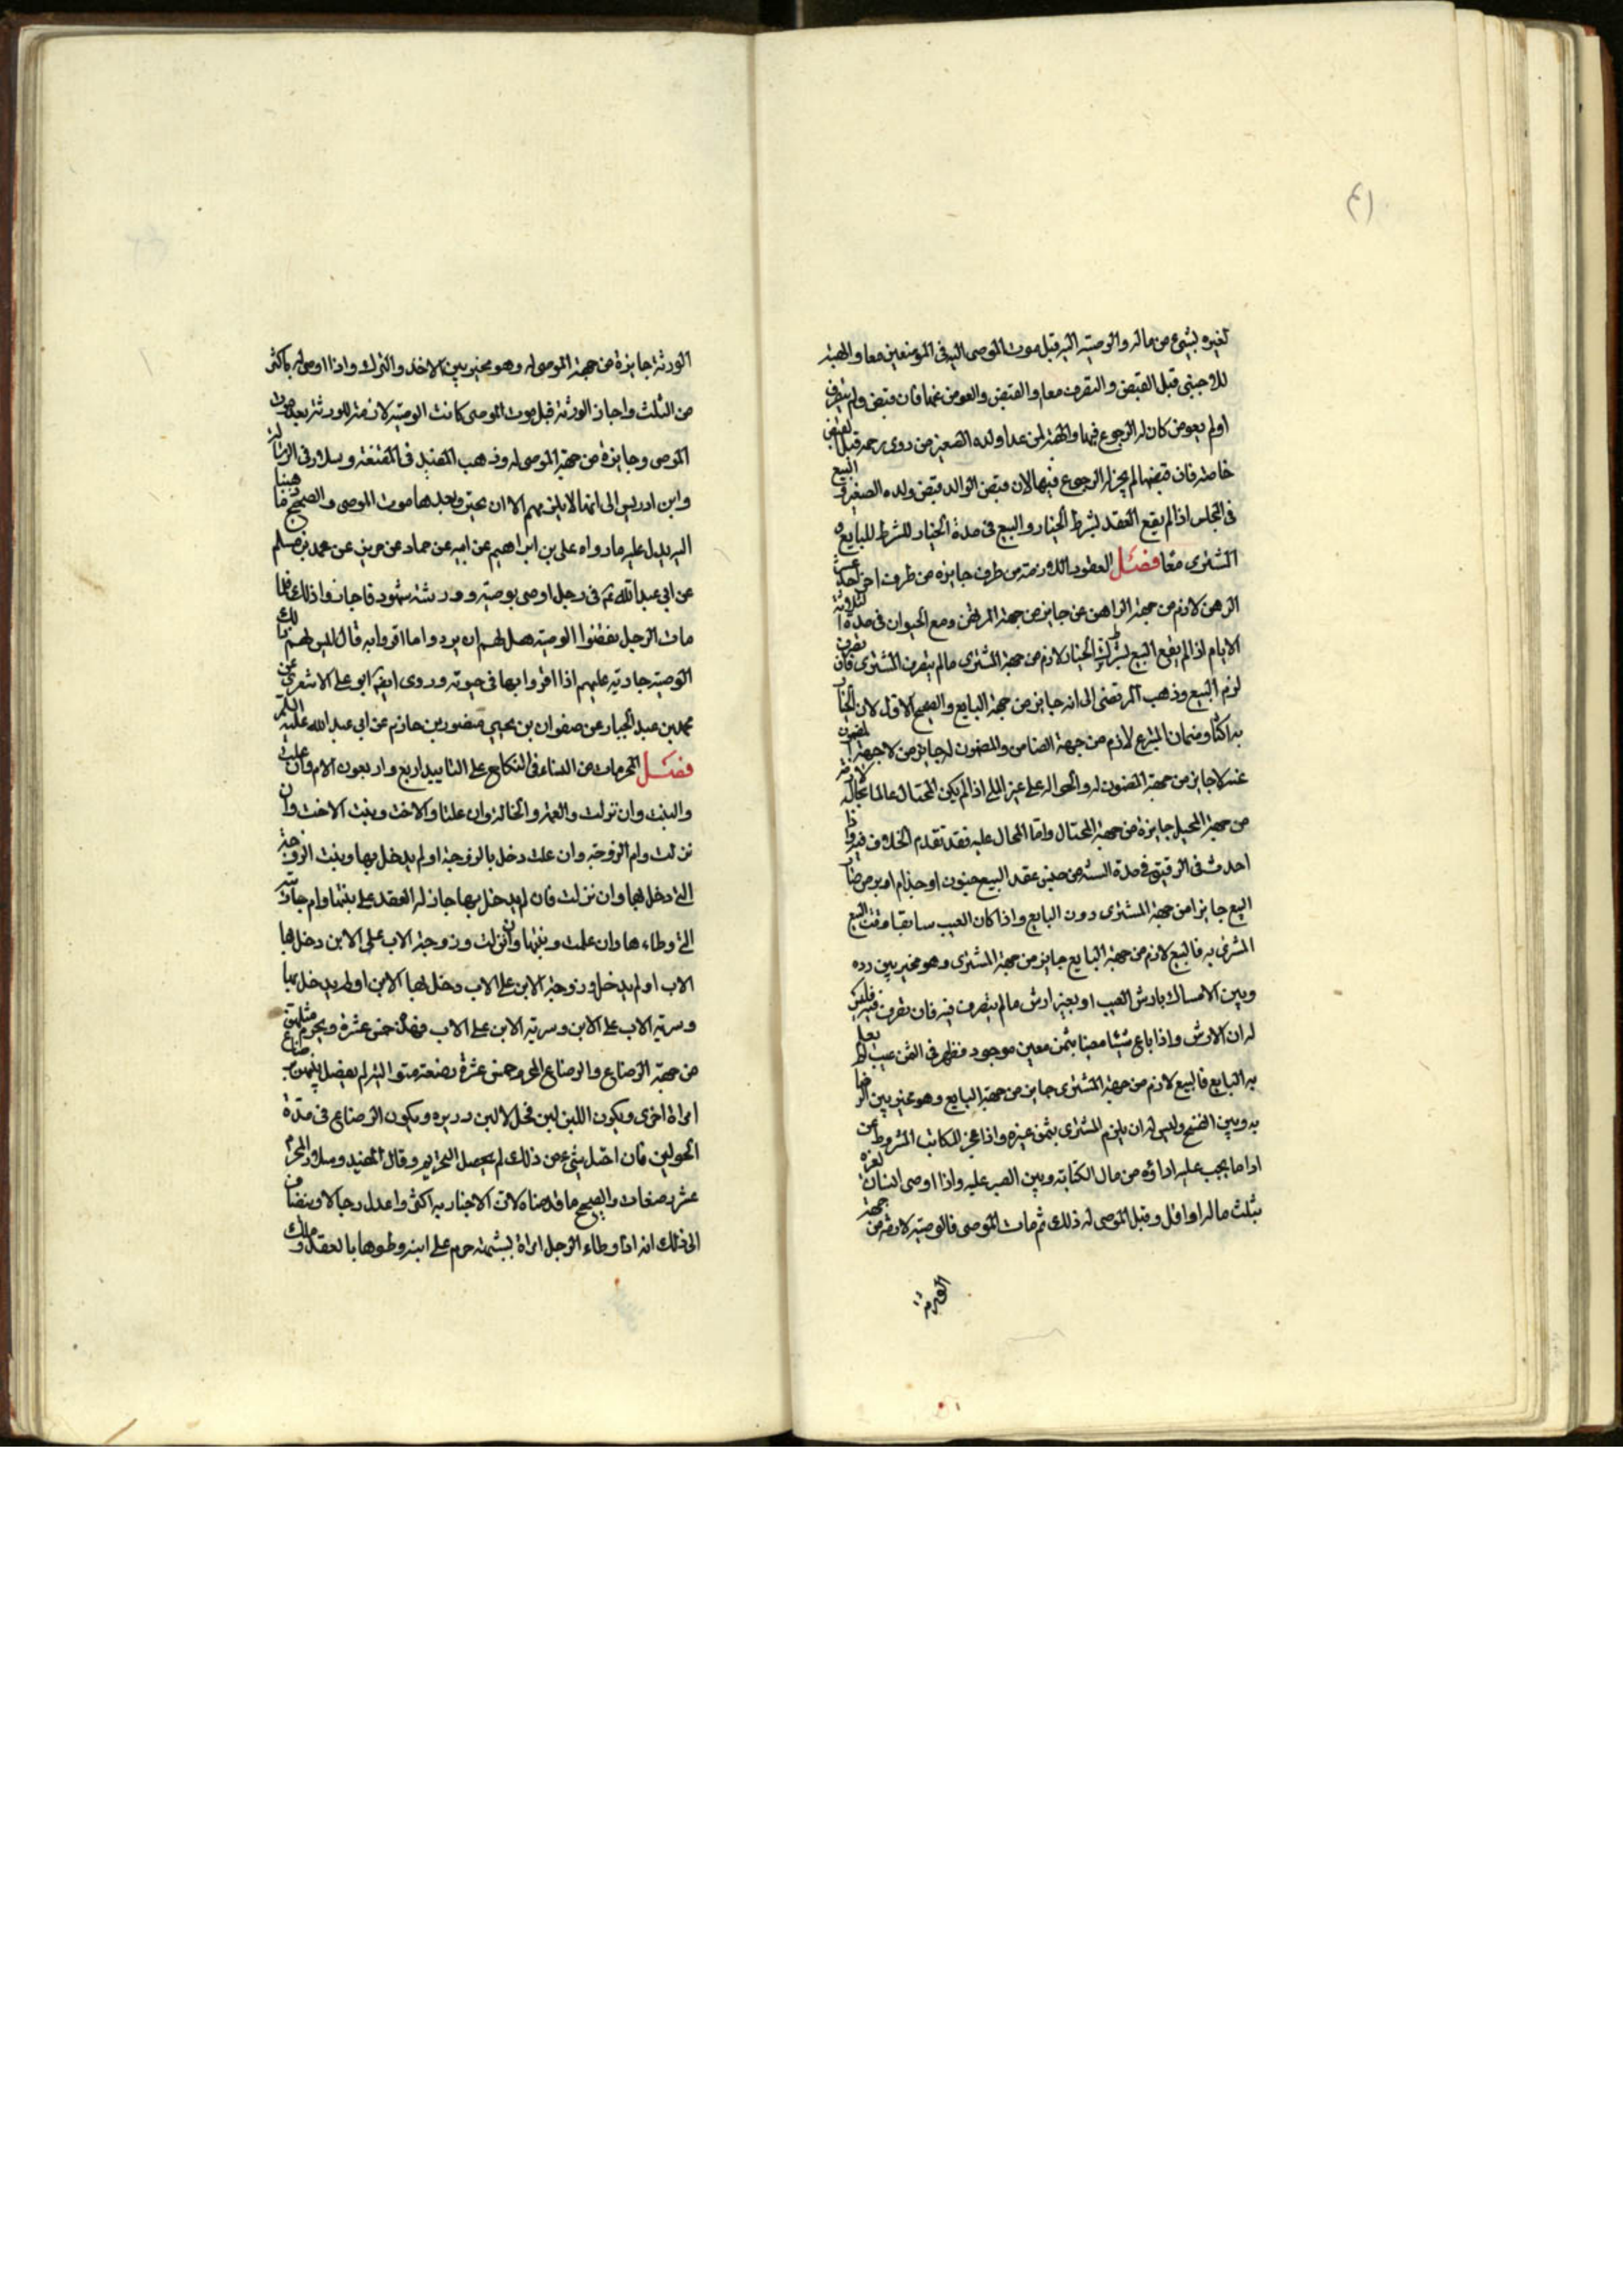 (٤١
لغيره بشيء من ماله والوصية اليه قبل موت الموصى اليه في الموضعين معا والهبة
للاجنبي قبل القبض والتصرف معا والقبض والعوض عنها فان قبض ولم يتصرف
اولم يعوض كان له الرجوع فيها والهبة لمن عدا ولده الصغير من ذوى رحمه قبل القبض
خاصة فان قبضها لم يجز له الرجوع فيها لان قبض الوالد قبض ولده الصغير والبيع
في المجلس اذا لم يقع العقد بشرط الخيار والبيع في مدة الخيار للشرط للبايع و
المشترى معا فصل العقود اللازمة من طرف جايزه من طرف اخر احد عشر
الرهن لازم من جهة الراهن جايز من جهة المرتهن وبيع الحيوان في مدة الثلاثة
الايام اذا لم يقع البيع بشرط الخيار لازم من جهة المشترى مالم يتصرف المشترى فان تصرف
لزم البيع وذهب المرتضى الى انه جايز من جهة البايع والصحيح الاول لان الاخبار
به اكثر وضمان المتبرع لازم من جهة الضامن والمضمون له جايز من لا جهة المضمون
عنه لا جايز من جهة المضمون له والحواله على غير الملي اذا لم يكن المحتال عالما بحاله لازمة
من جهة المحيل جايزة من جهة المحتال واما المحال عليه فقد تقدم الخلاف فيه واذا
احدث في الرقيق في مدة السنة من حين عقد البيع جنون او جذام او برص صار
البيع جايزا من جهة المشترى دون البايع واذا كان العيب سابقا وقت البيع
المشترى به فالبيع لازم من جهة البايع جايز من جهة المشترى وهو مخير بين رده
وبين الامساك بارش العيب او بغير ارش مالم يتصرف فيه فان تصرف فيه فليس
له الا الارش واذا باع شيئا معينا بثمن معين موجود فظهر في الثمن عيب لم يعلم
به البايع فالبيع لازم من جهة المشترى جايز من جهة البايع وهو مخير بين الرضا
به وبين الفسخ وليس له ان يلزم المشترى بثمن غيره واذا عجز المكاتب المشروط عن
اداء ما يجب عليه اداؤه من مال الكتابة وبين الصبر عليه واذا اوصى انسان لغيره
بثلث ماله او اقل وقبل الموصى له ذلك ثم مات الموصى فالوصية لازمة من جهة
الورثة
الورثة جايزة من جهة الموصى له وهو مخير بين الاخذ والترك واذا اوصى له باكثر
من الثلث واجاز الورثة قبل موت الموصى كانت الوصية لازمة للورثة بعد موت
الموصى وجايزة من جهة الموصى له وذهب المفيد في المقنعة وسلار في الرسالة
وابن ادريس الى انها لا يلزمهم الا ان يجيزوا بعد موت الموصى والصحيح ما ذهبنا
اليه يدل عليه مارواه على بن ابراهيم عن ابيه عن حماد عن حريز عن محمد بن مسلم
عن ابي عبدالله ع في رجل اوصى بوصية وورثته شهود فاجازوا ذلك فلما
مات الرجل نقضوا الوصية هل لهم ان يردوا ما اقروا به قال ليس لهم ذلك
الوصية جارية عليهم اذا اقروا بها في حيوته وروى ايضا ابو على الاشعري عن
محمد بن عبد الجبار عن صفوان بن يحيى منصور بن حازم عن ابي عبد الله عليه السلم
فصل المحرمات من النساء في النكاح على التابيد اربع واربعون الام وان علت
والبنت وان نزلت والعمة والخالة وان علتا والاخت وبنت الاخت وان
نزلت وام الزوجة وان علت دخل بالزوجة اولم يدخل بها وبنت الزوجة
التي دخل بها وان نزلت فان لم يدخل بها جاز له العقد على بنتها وام جاريته
التي وطاءها وان علت وبنتها وان نزلت وزوجة الاب على الابن دخل بها
الاب اولم يدخل وزوجة الابن على الاب دخل بها الابن اولم يدخل بها
وسرية الاب على الابن وسرية الابن على الاب فهذه خمس عشرة ويحرم مثلهن
من جهة الرضاع والرضاع المحرم خمس عشرة رضعة متوالية لم يفصل بينهن برضاع
امراة اخرى ويكون اللبن لبن فحل لا لبن دريره ويكون الرضاع في مدة
الحولين فان اختل شيء من ذلك لم يحصل التحريم وقال المفيد وسلار المحرم
عشر رضعات والصحيح ما قدمناه لان الاخبار به اكثر واعدل رجالا ويضاف
الى ذلك انه اذا وطاء الرجل امراة بشبهة حرم على ابنه وطوها بالعقد وملك